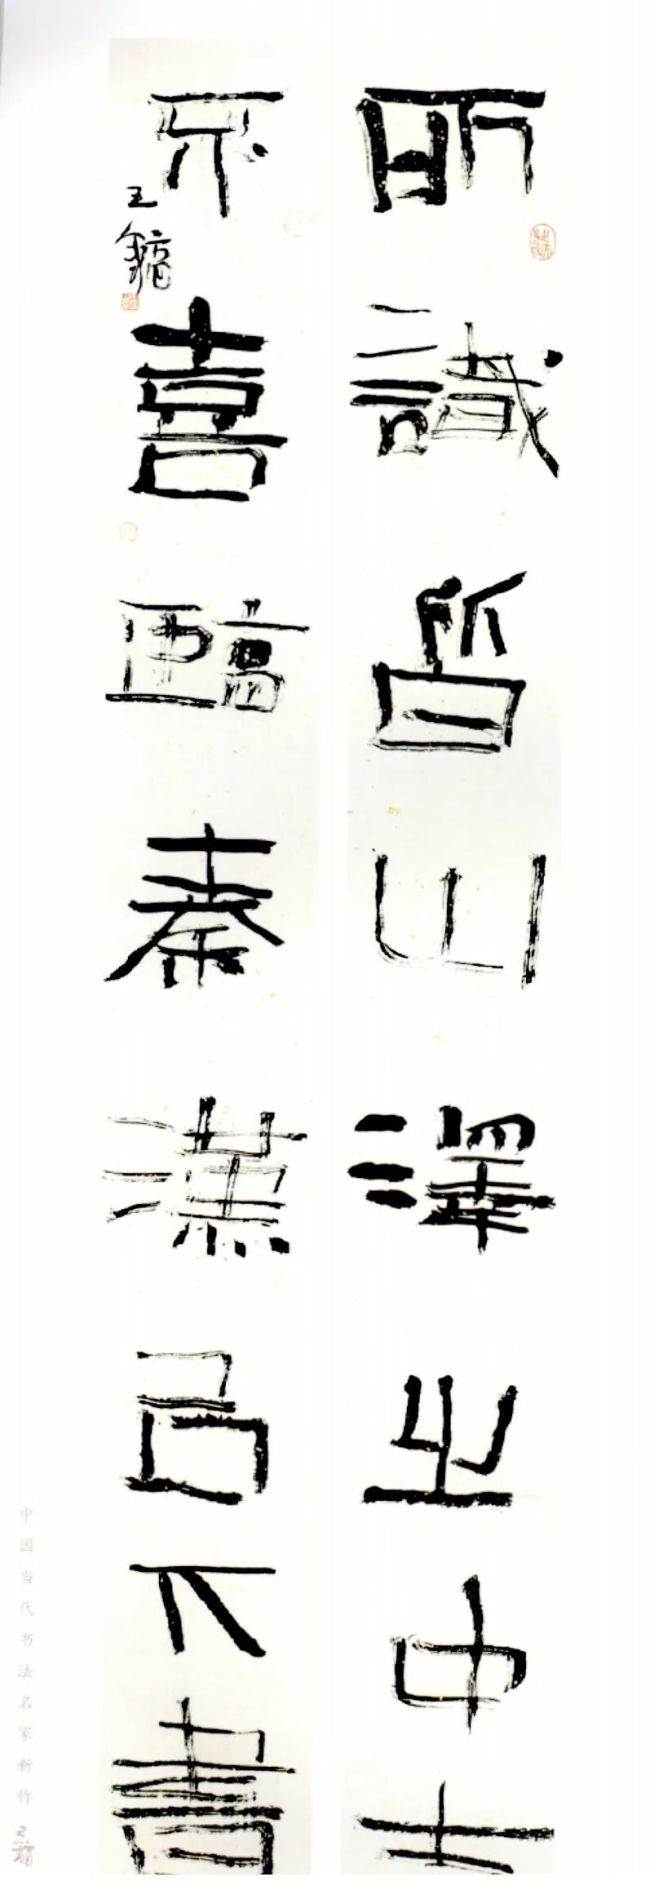 所識皆山澤之中士
不喜臨秦漢以下書
王鏞
中国当代书法名家新作 王镛